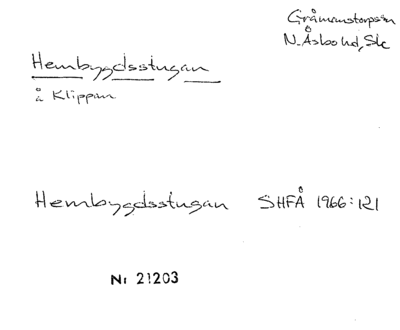 Gråmanstorps sn
N. Åsbo hd, Sk
Hembygdsstugan
å Klippan
Hembygdsstugan SHFÅ 1966:121
Nr 21203